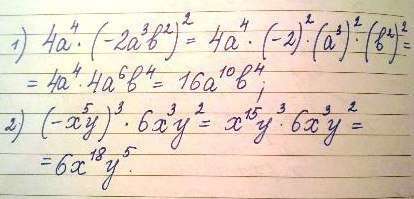 1) 4a⁴·(-2a³b²)² = 4a⁴·(-2)²·(a³)²·(b²)² =
= 4a⁴·4a⁶b⁴ = 16a¹⁰b⁴;
2) (-x⁵y)³·6x³y² = x¹⁵y³·6x³y² =
= 6x¹⁸y⁵.